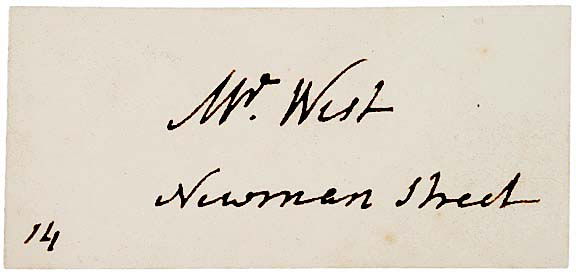 Mr. West
Newman Street
14